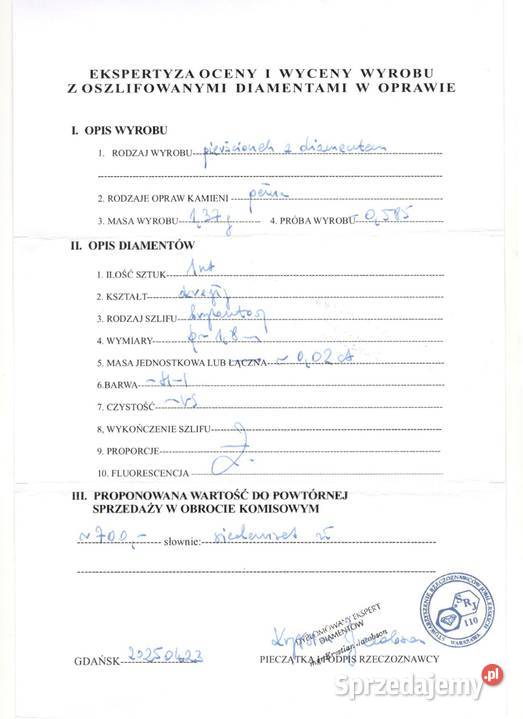 EKSPERTYZA OCENY I WYCENY WYROBU
Z OSZLIFOWANYMI DIAMENTAMI W OPRAWIE
I. OPIS WYROBU
1. RODZAJ WYROBU pierścionek z diamentem
2. RODZAJE OPRAW KAMIENI pełna
3. MASA WYROBU 1,37g 4. PRÓBA WYROBU ~ 0,585
II. OPIS DIAMENTÓW
1. ILOŚĆ SZTUK 1szt
2. KSZTAŁT okrągły
3. RODZAJ SZLIFU brylantowy
4. WYMIARY ~ 1,8
5. MASA JEDNOSTKOWA LUB ŁĄCZNA ~ 0,02 ct
6.BARWA ~H-I
7. CZYSTOŚĆ ~VS
8, WYKOŃCZENIE SZLIFU
9. PROPORCJE
10. FLUORESCENCJA
III. PROPONOWANA WARTOŚĆ DO POWTÓRNEJ
SPRZEDAŻY W OBROCIE KOMISOWYM
~700,- słownie: siedemset zł
STOWARZYSZENIE RZECZOZNAWCÓW JUBILERSKICH
SRJ
110
WARSZAWA
DYPLOMOWANY EKSPERT
DIAMENTÓW
Krystian Jacobson
GDAŃSK 20250423 PIECZĄTKA I PODPIS RZECZOZNAWCY
Sprzedajemy.pl